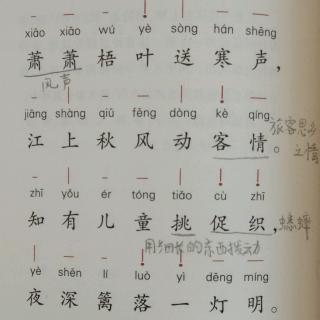 xiāo xiāo wú yè sòng hán shēng
萧萧梧叶送寒声，
风声
jiāng shàng qiū fēng dòng kè qíng
江上秋风动客情。
旅客思乡之情
zhī yǒu ér tóng tiǎo cù zhī
知有儿童挑促织，
蟋蟀
用细长的东西拨动
yè shēn lí luò yì dēng míng
夜深篱落一灯明。